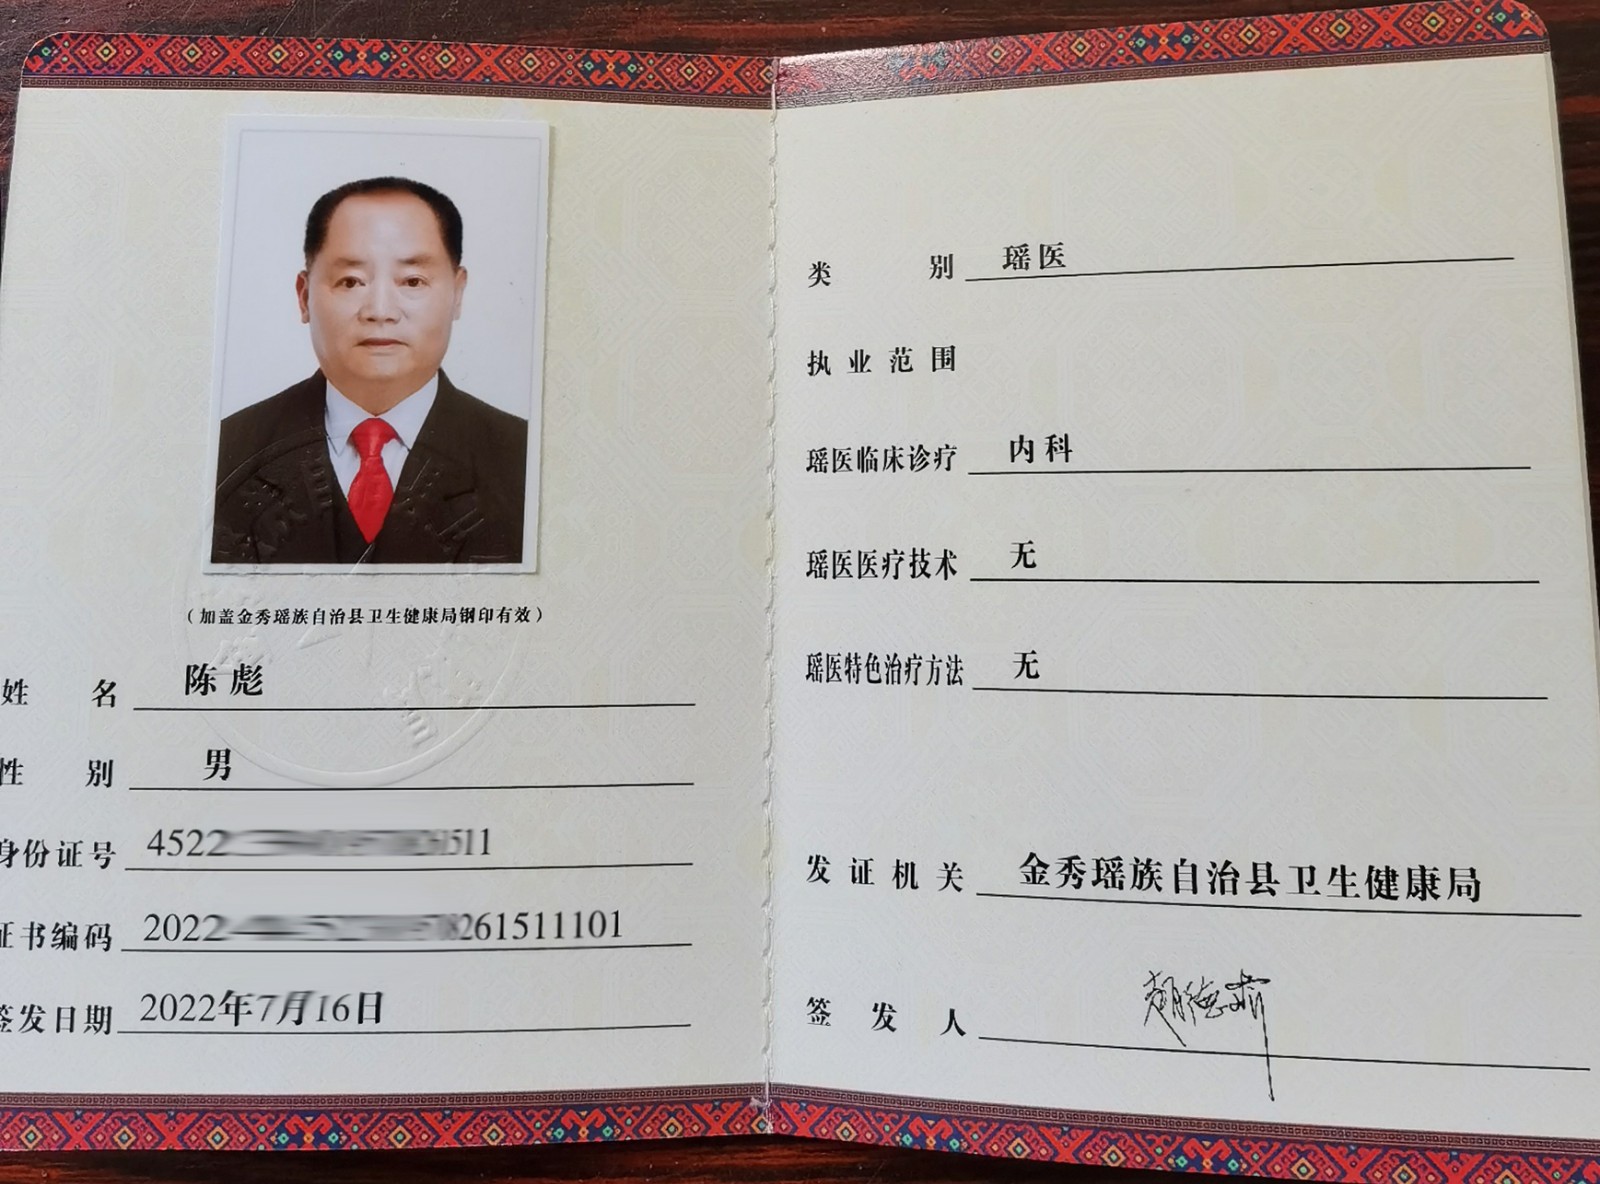 （加盖金秀瑶族自治县卫生健康局钢印有效）
姓 名 陈彪
性 别 男
身份证号 4522 511
证书编码 2022 8261511101
签发日期 2022年7月16日
类 别 瑶医
执业范围
瑶医临床诊疗 内科
瑶医医疗技术 无
瑶医特色治疗方法 无
发证机关 金秀瑶族自治县卫生健康局
签发人